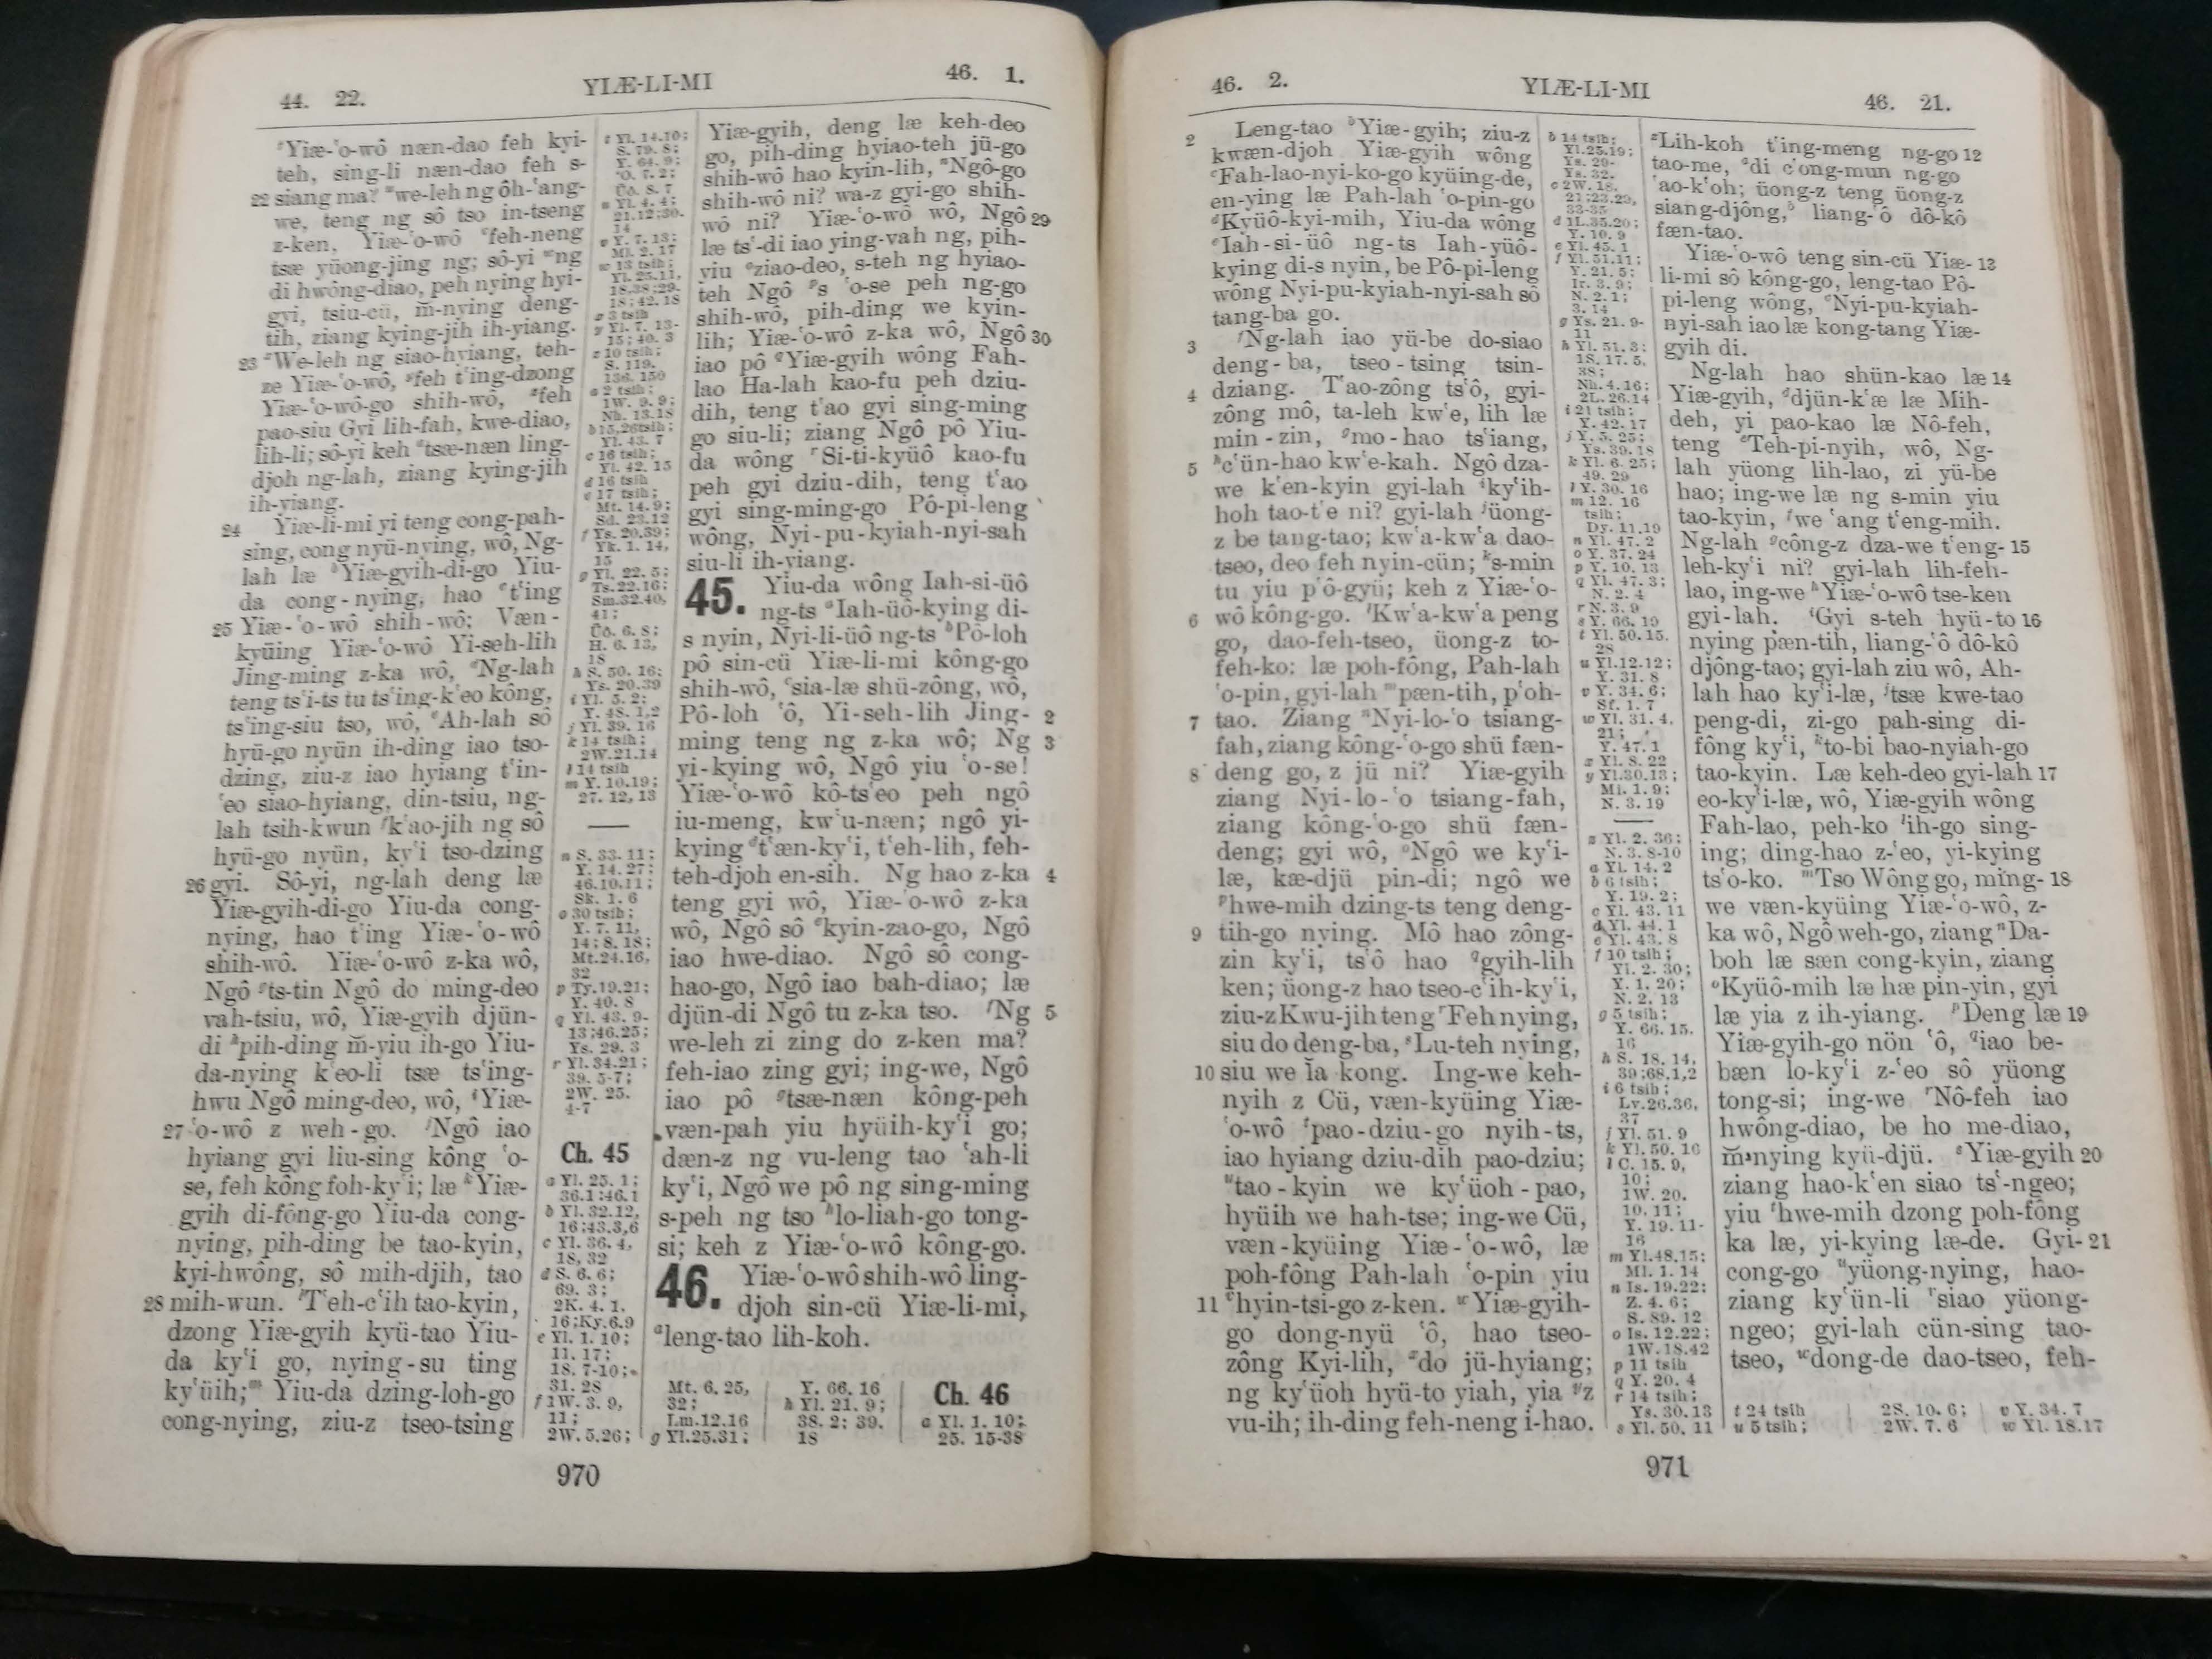 44. 22.
YIÆ-LI-MI
46. 1.
ˢYiæ-ʻo-wô næn-dao feh kyi-
teh, sing-li næn-dao feh s-
22 siang ma? ᵘwe-leh ng ôh-ʻang-
we, teng ng sô tso in-tseng
z-ken, Yiæ-ʻo-wô ᵉfeh-neng
tsæ yüong-jing ng; sô-yi ʷng
di hwông-diao, peh nying hyi-
gyi, tsiu-cü, m̆-nying deng-
tih, ziang kying-jih ih-yiang.
23 ᵃWe-leh ng siao-hyiang, teh-
ze Yiæ-ʻo-wô, ᵍfeh tʻing-dzong
Yiæ-ʻo-wô-go shih-wô, ᶻfeh
pao-siu Gyi lih-fah, kwe-diao,
lih-li; sô-yi keh ᵃtsæ-næn ling-
djoh ng-lah, ziang kying-jih
ih-yiang.
24 Yiæ-li-mi yi teng cong-pah-
sing, cong nyü-nying, wô, Ng-
lah læ ᵇYiæ-gyih-di-go Yiu-
da cong-nying, hao ᶜtʻing
25 Yiæ-ʻo-wô shih-wô; Væn-
kyüing Yiæ-ʻo-wô Yi-seh-lih
Jing-ming z-ka wô, ᵈNg-lah
teng tsʻi-ts tu tsʻing-kʻeo kông,
tsʻing-siu tso, wô, ᵉAh-lah sô
hyü-go nyün ih-ding iao tso-
dzing, ziu-z iao hyiang tʻin-
ʻeo siao-hyiang, din-tsiu, ng-
lah tsih-kwun ᶠkʻao-jih ng sô
hyü-go nyün, kyʻi tso-dzing
26 gyi. Sô-yi, ng-lah deng læ
Yiæ-gyih-di-go Yiu-da cong-
nying, hao tʻing Yiæ-ʻo-wô
shih-wô. Yiæ-ʻo-wô z-ka wô,
Ngô ᵍts-tin Ngô do ming-deo
vah-tsiu, wô, Yiæ-gyih djün-
di ʰpih-ding m̆-yiu ih-go Yiu-
da-nying kʻeo-li tsæ tsʻing-
hwu Ngô ming-deo, wô, ⁱYiæ-
27 ʻo-wô z weh-go. ʲNgô iao
hyiang gyi liu-sing kông ʻo-
se, feh kông foh-kyʻi; læ ᵏYiæ-
gyih di-fông-go Yiu-da cong-
nying, pih-ding be tao-kyin,
kyi-hwông, sô mih-djih, tao
28 mih-wun. ˡTʻeh-cʻih tao-kyin,
dzong Yiæ-gyih kyü-tao Yiu-
da kyʻi go, nying-su ting
kyʻüih;ᵐ Yiu-da dzing-loh-go
cong-nying, ziu-z tseo-tsing
t Yl. 14.10;
S. 79. 8;
Y. 64. 9;
ʻO. 7. 2;
Cô. 8. 7
u Yl. 4. 4;
21.12;30.
14
v Y. 7. 13;
Ml. 2. 17
w 13 tsih;
Yl. 25.11,
18,38;29.
18;42. 18
x 3 tsih
y Yl. 7. 13-
15; 40. 3
z 10 tsih;
S. 119.
136, 150
a 2 tsih;
1W. 9. 9;
Nh. 13.18
b 15,26tsih;
Yl. 43. 7
c 16 tsih;
Yl. 42. 15
d 16 tsih
e 17 tsih;
Mt. 14. 9;
Sd. 23.12
f Ys. 20.39;
Yk. 1. 14,
15
g Yl. 22. 5;
Ts.22.16;
Sm.32.40,
41;
Cô. 6. 8;
H. 6. 13,
18
h S. 50. 16;
Ys. 20.39
i Yl. 5. 2;
Y. 48. 1,2
j Yl. 39. 16
k 14 tsih;
2W.21.14
l 14 tsih
m Y. 10.19;
27. 12, 13
n S. 33. 11;
Y. 14. 27;
46.10,11;
Sk. 1. 6
o 30 tsih;
Y. 7. 11,
14; 8. 18;
Mt.24.16,
32
p Ty.19.21;
Y. 40. 8
q Yl. 43. 9-
13;46.25;
Ys. 29. 3
r Yl. 34.21;
39. 5-7;
2W. 25.
4-7
Ch. 45
a Yl. 25. 1;
36.1;46.1
b Yl. 32.12,
16;43.3,6
c Yl. 36. 4,
18, 32
d S. 6. 6;
69. 3;
2K. 4. 1,
16;Ky.6.9
e Yl. 1. 10;
11. 17;
18. 7-10;
31. 28
f 1W. 3. 9,
11;
2W. 5.26;
Yiæ-gyih, deng læ keh-deo
go, pih-ding hyiao-teh jü-go
shih-wô hao kyin-lih, ⁿNgô-go
shih-wô ni? wa-z gyi-go shih-
wô ni? Yiæ-ʻo-wô wô, Ngô 29
læ tsʻ-di iao ying-vah ng, pih-
yiu ᵒziao-deo, s-teh ng hyiao-
teh Ngô ᵖs ʻo-se peh ng-go
shih-wô, pih-ding we kyin-
lih; Yiæ-ʻo-wô z-ka wô, Ngô 30
iao pô ᑫYiæ-gyih wông Fah-
lao Ha-lah kao-fu peh dziu-
dih, teng tʻao gyi sing-ming
go siu-li; ziang Ngô pô Yiu-
da wông ʳSi-ti-kyüô kao-fu
peh gyi dziu-dih, teng tʻao
gyi sing-ming-go Pô-pi-leng
wông, Nyi-pu-kyiah-nyi-sah
siu-li ih-yiang.
45. Yiu-da wông Iah-si-üô
ng-ts ᵃIah-üô-kying di-
s nyin, Nyi-li-üô ng-ts ᵇPô-loh
pô sin-cü Yiæ-li-mi kông-go
shih-wô, ᶜsia-læ shü-zông, wô,
Pô-loh ʻô, Yi-seh-lih Jing- 2
ming teng ng z-ka wô; Ng 3
yi-kying wô, Ngô yiu ʻo-se!
Yiæ-ʻo-wô kô-tsʻeo peh ngô
iu-meng, kwʻu-næn; ngô yi-
kying ᵈtʻæn-kyʻi, tʻeh-lih, feh-
teh-djoh en-sih. Ng hao z-ka 4
teng gyi wô, Yiæ-ʻo-wô z-ka
wô, Ngô sô ᵉkyin-zao-go, Ngô
iao hwe-diao. Ngô sô cong-
hao-go, Ngô iao bah-diao; læ
djün-di Ngô tu z-ka tso. ᶠNg 5
we-leh zi zing do z-ken ma?
feh-iao zing gyi; ing-we, Ngô
iao pô ᵍtsæ-næn kông-peh
væn-pah yiu hyüih-kyʻi go;
dæn-z ng vu-leng tao ʻah-li
kyʻi, Ngô we pô ng sing-ming
s-peh ng tso ʰlo-liah-go tong-
si; keh z Yiæ-ʻo-wô kông-go.
46. Yiæ-ʻo-wô shih-wô ling-
djoh sin-cü Yiæ-li-mi,
ᵃleng-tao lih-koh.
Mt. 6. 25,
32;
Lm.12.16
g Yl.25.31;
Y. 66. 16
h Yl. 21. 9;
38. 2; 39.
18
Ch. 46
a Yl. 1. 10;
25. 15-38
970
46. 2.
YIÆ-LI-MI
46. 21.
2 Leng-tao ᵇYiæ-gyih; ziu-z
kwæn-djoh Yiæ-gyih wông
ᶜFah-lao-nyi-ko-go kyüing-de,
en-ying læ Pah-lah ʻo-pin-go
ᵈKyüô-kyi-mih, Yiu-da wông
ᵉIah-si-üô ng-ts Iah-yüô-
kying di-s nyin, be Pô-pi-leng
wông Nyi-pu-kyiah-nyi-sah sô
tang-ba go.
3 ᶠNg-lah iao yü-be do-siao
deng-ba, tseo-tsing tsin-
4 dziang. Tʻao-zông tsʻô, gyi-
zông mô, ta-leh kwʻe, lih læ
min-zin, ᵍmo-hao tsʻiang,
5 ʰcʻün-hao kwʻe-kah. Ngô dza-
we kʻen-kyin gyi-lah ⁱkyʻih-
hoh tao-tʻe ni? gyi-lah ʲüong-
z be tang-tao; kwʻa-kwʻa dao-
tseo, deo feh nyin-cün; ᵏs-min
tu yiu pʻô-gyü; keh z Yiæ-ʻo-
6 wô kông-go. ˡKwʻa-kwʻa peng
go, dao-feh-tseo, üong-z to-
feh-ko: læ poh-fông, Pah-lah
ʻo-pin, gyi-lah ᵐpæn-tih, pʻoh-
7 tao. Ziang ⁿNyi-lo-ʻo tsiang-
fah, ziang kông-ʻo-go shü fæn-
8 deng go, z jü ni? Yiæ-gyih
ziang Nyi-lo-ʻo tsiang-fah,
ziang kông-ʻo-go shü fæn-
deng; gyi wô, ᵒNgô we kyʻi-
læ, kæ-djü pin-di; ngô we
ᵖhwe-mih dzing-ts teng deng-
9 tih-go nying. Mô hao zông-
zin kyʻi, tsʻô hao ᑫgyih-lih
ken; üong-z hao tseo-cʻih-kyʻi,
ziu-z Kwu-jih teng ʳFeh nying,
siu do deng-ba, ˢLu-teh nying,
10 siu we la kong. Ing-we keh-
nyih z Cü, væn-kyüing Yiæ-
ʻo-wô ᵗpao-dziu-go nyih-ts,
iao hyiang dziu-dih pao-dziu;
ᵘtao-kyin we kyʻüoh-pao,
hyüih we hah-tse; ing-we Cü,
væn-kyüing Yiæ-ʻo-wô, læ
poh-fông Pah-lah ʻo-pin yiu
11 ᵛhyin-tsi-go z-ken. ʷYiæ-gyih-
go dong-nyü ʻô, hao tseo-
zông Kyi-lih, ˣdo jü-hyiang;
ng kyʻüoh hyü-to yiah, yia ʸz
vu-ih; ih-ding feh-neng i-hao.
b 14 tsih;
Yl.25.19;
Ys. 29-
Ys. 32.
c 2W. 18.
21;23.29,
33-35
d 1L.35.20;
Y. 10. 9
e Yl. 45. 1
f Yl. 51.11;
Y. 21. 5;
Ir. 3. 9;
N. 2. 1;
3. 14
g Ys. 21. 9-
11
h Yl. 51. 3;
1S. 17. 5,
38;
Nh. 4.16;
2L. 26.14
i 21 tsih;
Y. 42. 17
j Y. 5. 25;
Ys. 39. 18
k Yl. 6. 25;
49. 29
l Y. 30. 16
m 12, 16
tsih;
Dy. 11.19
n Yl. 47. 2
o Y. 37. 24
p Y. 10. 13
q Yl. 47. 3;
N. 2. 4
r N. 3. 9
s Y. 66. 19
t Yl. 50. 15,
28
u Yl.12.12;
Y. 31. 8
v Y. 34. 6;
Sf. 1. 7
w Yl. 31. 4,
21;
Y. 47. 1
x Yl. 8. 22
y Yl.30.13;
Mi. 1. 9;
N. 3. 19
z Yl. 2. 36;
N. 3. 8-10
a Yl. 14. 2
b 6 tsih;
Y. 19. 2;
c Yl. 43. 11
d Yl. 44. 1
e Yl. 43. 8
f 10 tsih;
Yl. 2. 30;
Y. 1. 20;
N. 2. 13
g 5 tsih;
Y. 66. 15,
16
h S. 18. 14,
39;68.1,2
i 6 tsih;
Lv.26.36,
37
j Yl. 51. 9
k Yl. 50. 16
l C. 15. 9,
10;
1W. 20.
10, 11;
Y. 19. 11-
16
m Yl.48.15;
Ml. 1. 14
n Is. 19.22;
Z. 4. 6;
S. 89. 12
o Is. 12.22;
1W.18.42
p 11 tsih
q Y. 20. 4
r 14 tsih;
Ys. 30.13
s Yl. 50. 11
ᶻLih-koh tʻing-meng ng-go 12
tao-me, ᵃdi cʻong-mun ng-go
ʻao-kʻoh; üong-z teng üong-z
siang-djông,ᵇ liang-ʻô dô-kô
fæn-tao.
Yiæ-ʻo-wô teng sin-cü Yiæ- 13
li-mi sô kông-go, leng-tao Pô-
pi-leng wông, ᶜNyi-pu-kyiah-
nyi-sah iao læ kong-tang Yiæ-
gyih di.
Ng-lah hao shün-kao læ 14
Yiæ-gyih, ᵈdjün-kʻæ læ Mih-
deh, yi pao-kao læ Nô-feh,
teng ᵉTeh-pi-nyih, wô, Ng-
lah yüong lih-lao, zi yü-be
hao; ing-we læ ng s-min yiu
tao-kyin, ᶠwe ʻang tʻeng-mih.
Ng-lah ᵍcông-z dza-we tʻeng- 15
leh-kyʻi ni? gyi-lah lih-feh-
lao, ing-we ʰYiæ-ʻo-wô tse-ken
gyi-lah. ⁱGyi s-teh hyü-to 16
nying pæn-tih, liang-ʻô dô-kô
djông-tao; gyi-lah ziu wô, Ah-
lah hao kyʻi-læ, ʲtsæ kwe-tao
peng-di, zi-go pah-sing di-
fông kyʻi, ᵏto-bi bao-nyiah-go
tao-kyin. Læ keh-deo gyi-lah 17
eo-kyʻi-læ, wô, Yiæ-gyih wông
Fah-lao, peh-ko ˡih-go sing-
ing; ding-hao z-ʻeo, yi-kying
tsʻo-ko. ᵐTso Wông go, ming- 18
we væn-kyüing Yiæ-ʻo-wô, z-
ka wô, Ngô weh-go, ziang ⁿDa-
boh læ sæn cong-kyin, ziang
ᵒKyüô-mih læ hæ pin-yin, gyi
læ yia z ih-yiang. ᵖDeng læ 19
Yiæ-gyih-go nön ʻô, ᑫiao be-
bæn lo-kyʻi z-ʻeo sô yüong
tong-si; ing-we ʳNô-feh iao
hwông-diao, be ho me-diao,
m̆-nying kyü-djü. ˢYiæ-gyih 20
ziang hao-kʻen siao tsʻ-ngeo;
yiu ᵗhwe-mih dzong poh-fông
ka læ, yi-kying læ-de. Gyi- 21
cong-go ᵘyüong-nying, hao-
ziang kyʻün-li ᵛsiao yüong-
ngeo; gyi-lah cün-sing tao-
tseo, ʷdong-de dao-tseo, feh-
t 24 tsih
u 5 tsih;
2S. 10. 6;
2W. 7. 6
v Y. 34. 7
w Yl. 18.17
971